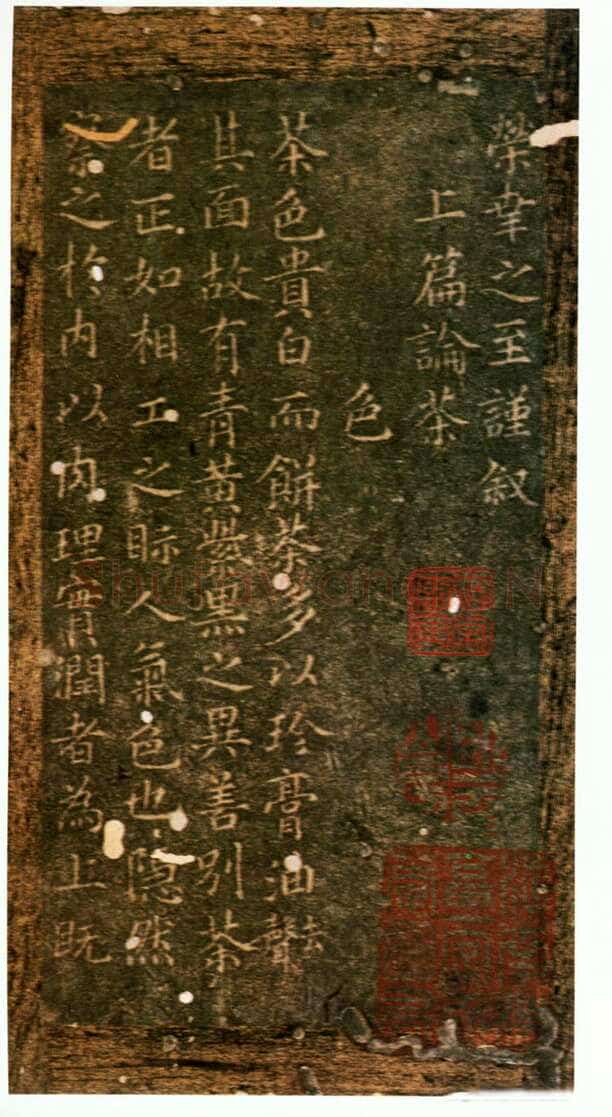 榮幸之至謹叙
上篇論茶
色
茶色貴白而餅茶多以珍膏油去聲
其面故有青黃紫黑之異善別茶
者正如相工之眎人氣色也隱然
察之於内以肉理實潤者為上既
Shufawang.CN